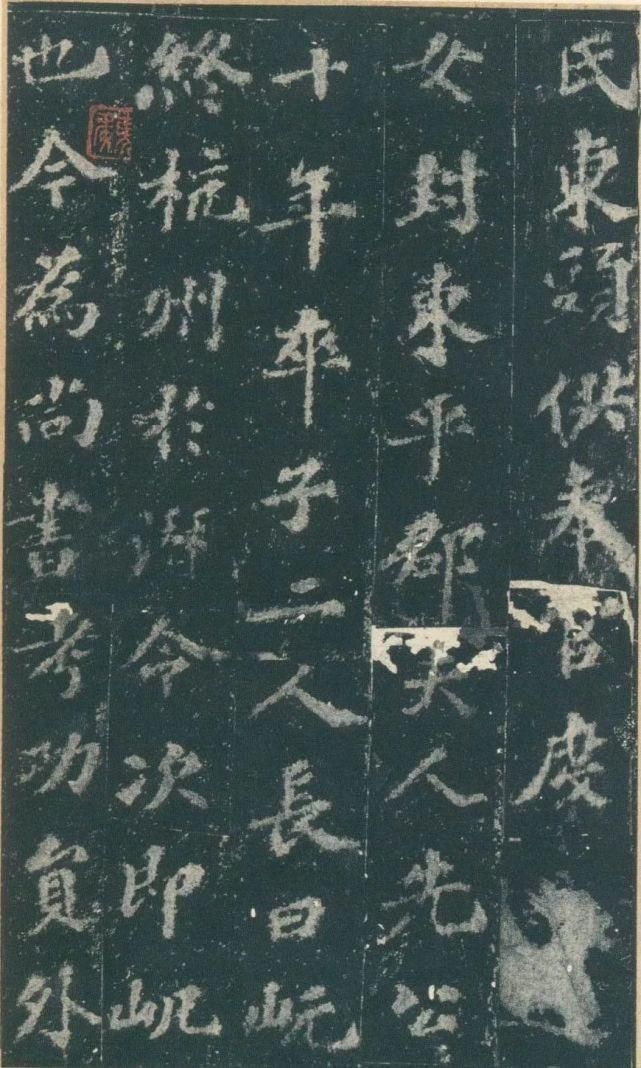 氏東頭供奉官度
女封東平郡夫人先公
十年卒子二人長曰岏
終杭州於潛令次即岘
也今為尚書考功員外